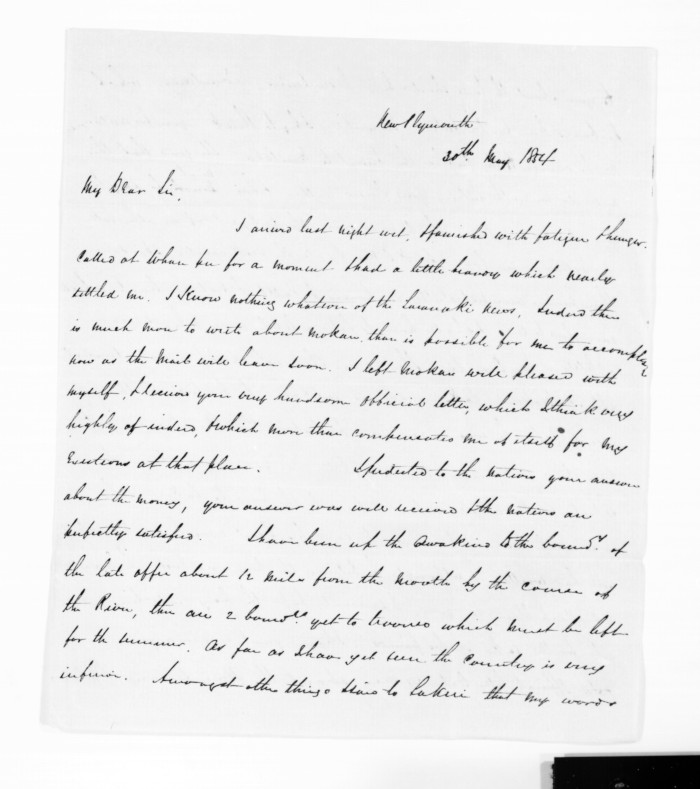 New Plymouth
30th May 1854
My Dear Sir,
I arrived last night wet, & famished with fatigue & hunger.
Called at Whan for a moment & had a little which nearly
settled me. I know nothing whatever of the Taranaki news. Indeed there
is much more to write about Mokau than is possible for me to accomplish
now as the Mail will leave soon. I left Mokau well pleased with
myself, & received your very handsome official letter, which I think very
highly of indeed, & which more than compensates me of itself for my
Exertions at that place. I to the natives your answer
about the money, your answer was well received & the natives are
perfectly satisfied. I have been up the Awakino to the boundy. of
the late offer about 12 miles from the mouth by the course of
the River, there are 2 boundes. yet to traverse which must be left
for the summer. As far as I have yet seen the Country is very
inferior. Amongst other things to Takiri that my words